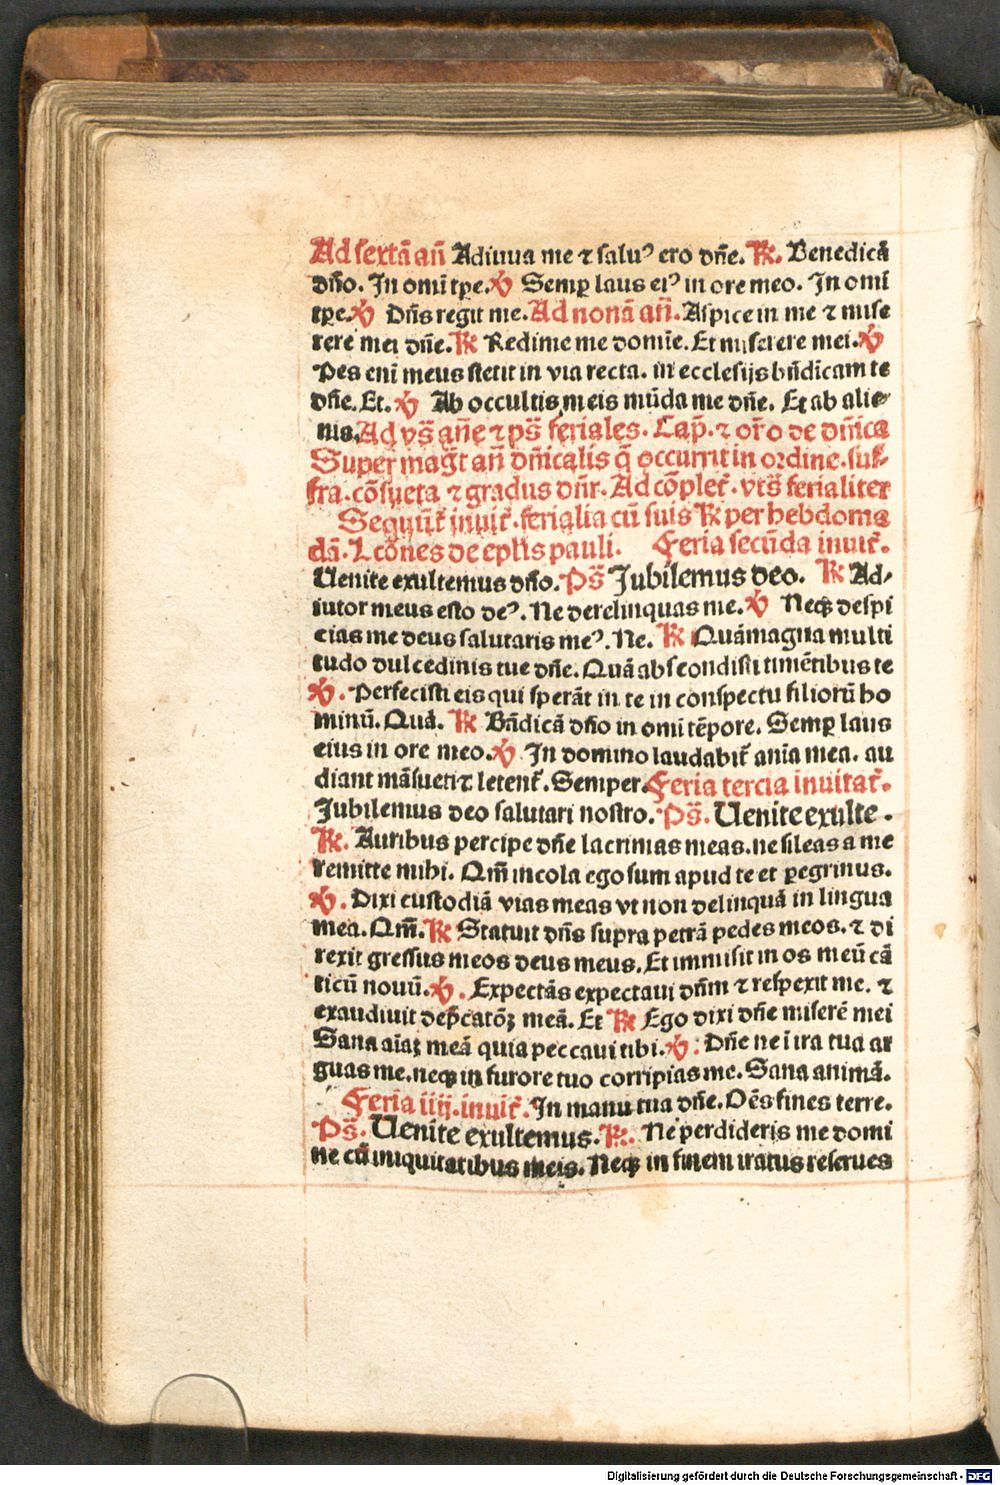 Ad sextā añ Adiuua me ⁊ saluꝰ ero dñe. ℟. Benedicā
dño. In omī tꝑe. ℣ Semꝑ laus eiꝰ in ore meo. In omī
tꝑe. ℣ Dñs regit me. Ad nonā añ. Aspice in me ⁊ mise
rere mei dñe. ℟ Redime me domīe. Et miserere mei. ℣
Pes eni meus stetit in via recta. in ecclesijs bñdicam te
dñe. Et. ℣ Ab occultis meis mūda me dñe. Et ab alie⸗
nis. Ad vs̃ añe ⁊ ps̃ feriales. Cap̄. ⁊ or̄o de dñica
Super magt̄ añ dñicalis q̄ occurrit in ordine. suf⸗
fra. cōsueta ⁊ gradus dñr. Ad cōplet̄. vts̃ ferialiter
Sequūt̄ inuit̄. ferialia cū suis ℟ per hebdoma
dā. Lcōnes de eplīs pauli. Feria secūda inuit̄.
Uenite exultemus dño. Ps̃ Jubilemus deo. ℟ Ad⸗
iutor meus esto deꝰ. Ne derelinquas me. ℣ Neqꝫ despi
cias me deus salutaris meꝰ. Ne. ℟ Quā magna multi
tudo dulcedinis tue dñe. Quā abscondisti timētibus te
℣. Perfecisti eis qui sperāt in te in conspectu filiorū ho
minū. Quā. ℟ Bñdicā dño in omī tēpore. Semꝑ laus
eius in ore meo. ℣ In domino laudabit̄ anīa mea. au
diant māsueti ⁊ letent̄. Semper. Feria tercia inuitat̄.
Jubilemus deo salutari nostro. Ps̃. Uenite exulte.
℟. Auribus percipe dñe lacrimas meas. ne sileas a me
remitte mihi. Qm̄ incola ego sum apud te et ꝑegrinus.
℣. Dixi custodiā vias meas vt non delinquā in lingua
mea. Qm̄. ℟ Statuit dñs supra petrā pedes meos. ⁊ di
rexit gressus meos deus meus. Et immisit in os meū cā
ticū nouū. ℣. Expectās expectaui dñm ⁊ respexit me. ⁊
exaudiuit dep̄catōꝫ meā. Et ℟ Ego dixi dñe miserē mei
Sana aīaꝫ meā quia peccaui tibi. ℣: Dñe ne ī ira tua ar
guas me. neqꝫ in furore tuo corripias me. Sana animā.
Feria iiij. inuit̄. In manu tua dñe. Oēs fines terre.
Ps̃. Uenite exultemus. ℟. Ne perdideris me domi
ne cū iniquitatibus meis. Neqꝫ in finem iratus reserues
Digitalisierung gefördert durch die Deutsche Forschungsgemeinschaft - DFG